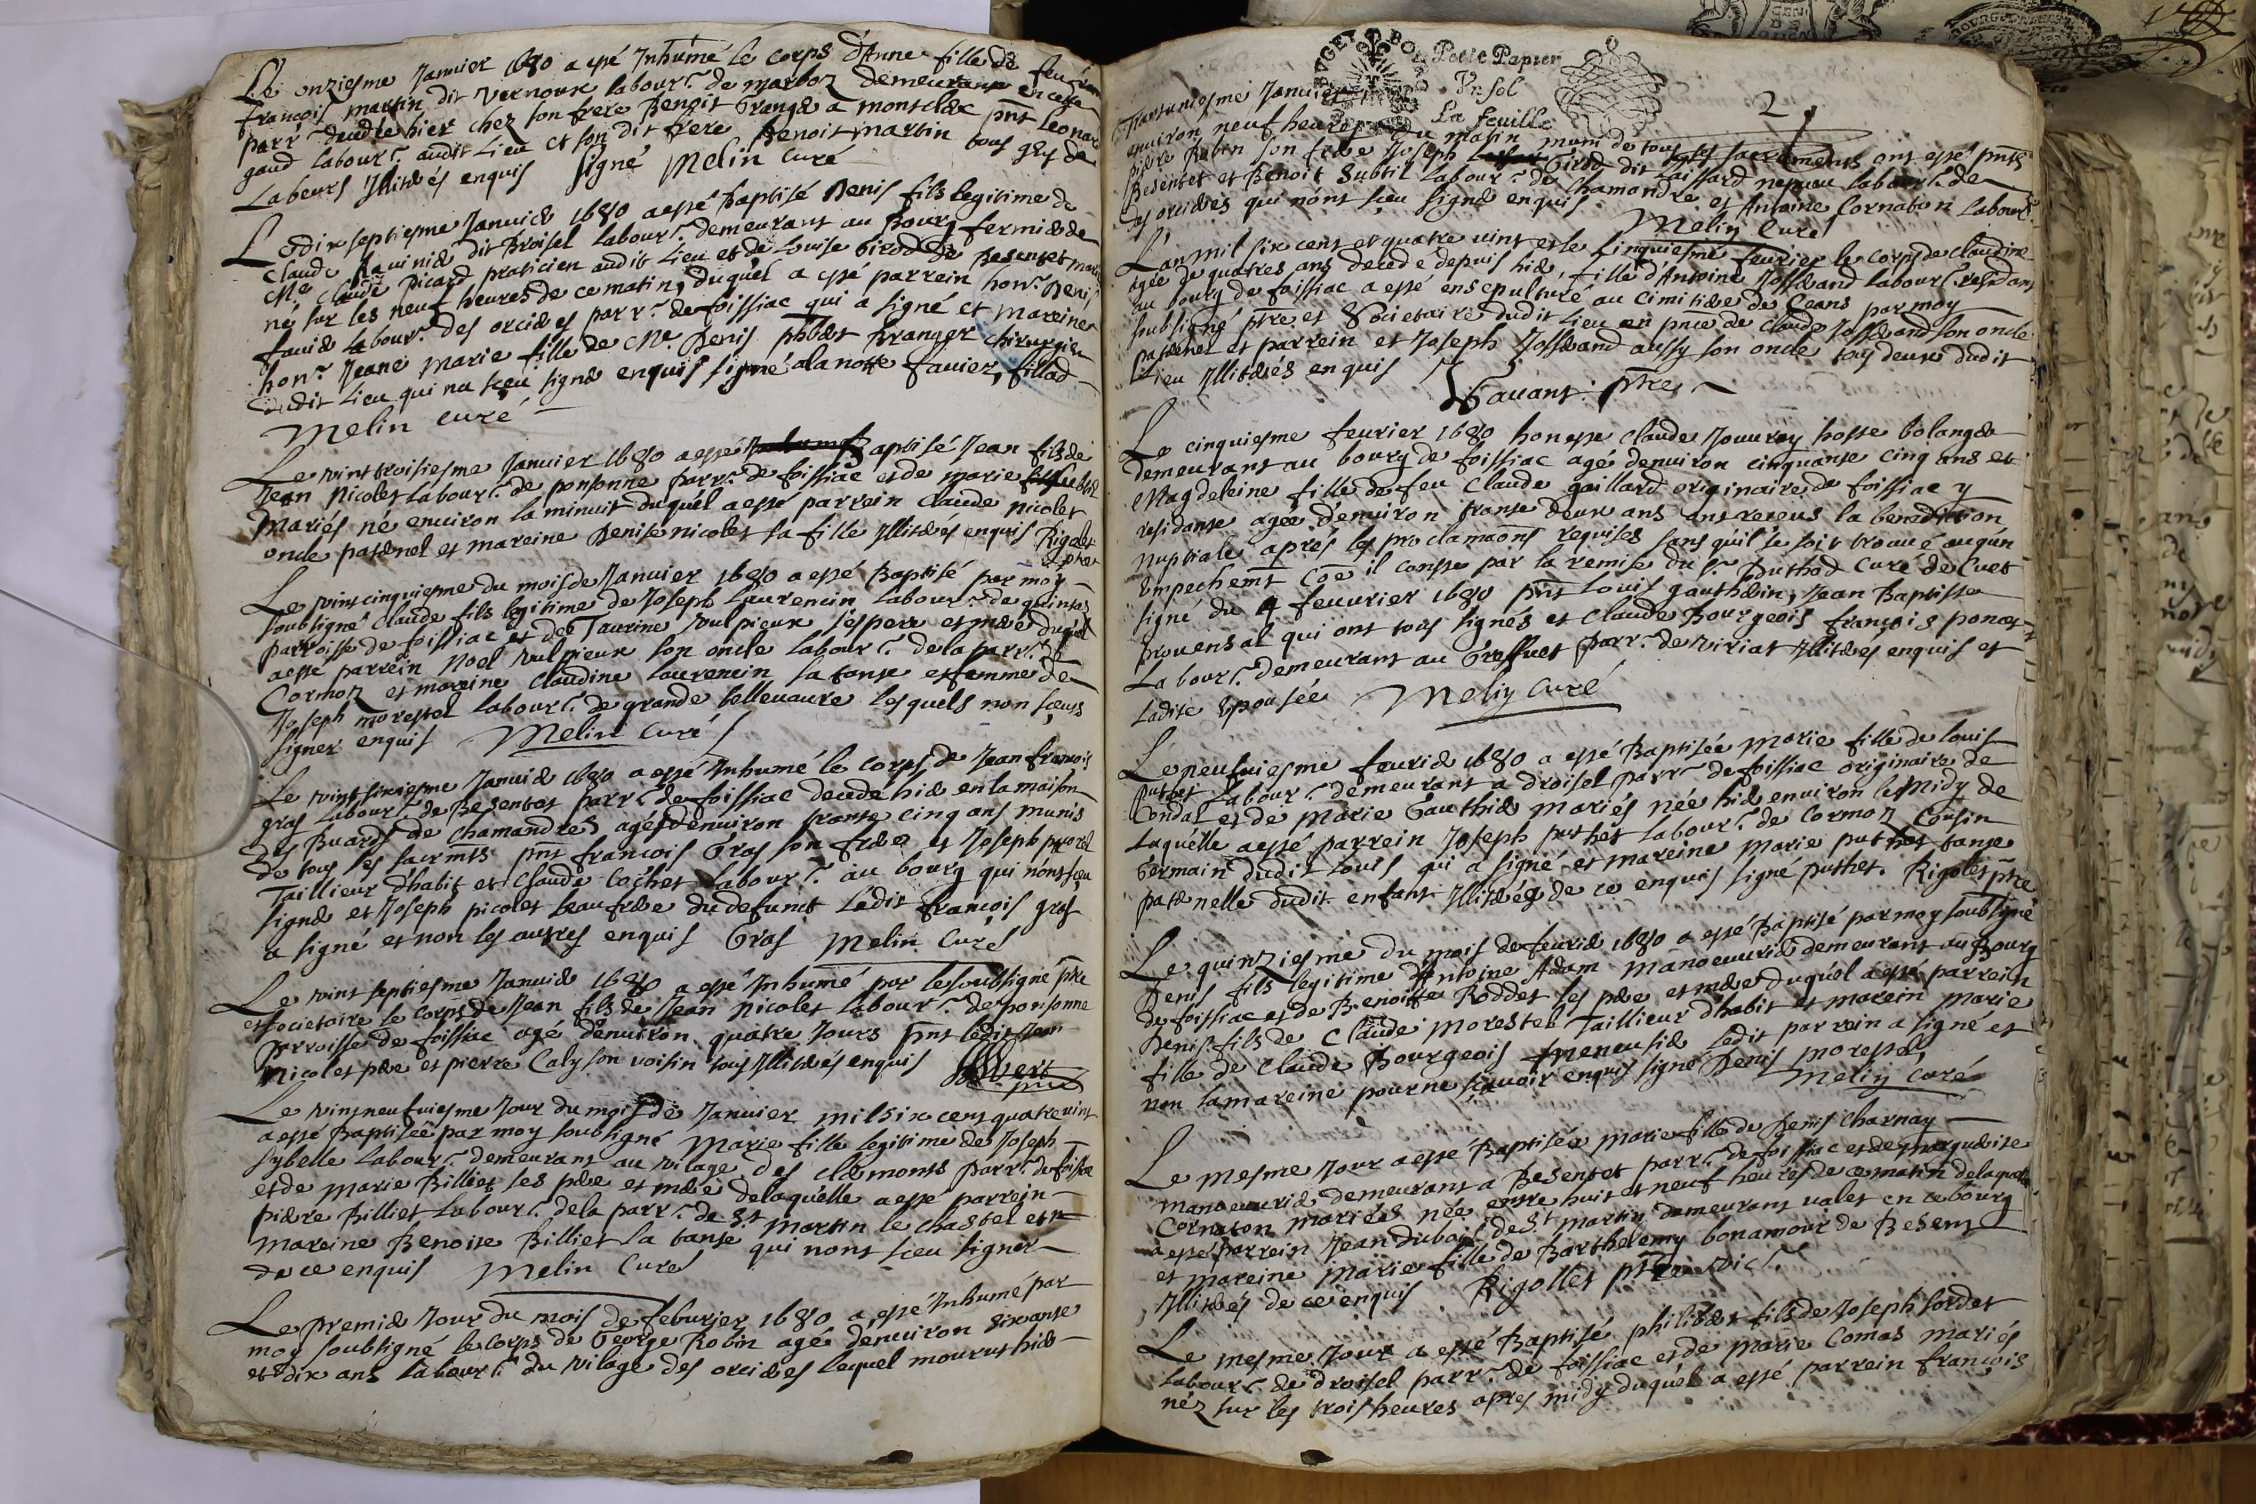 Le onziesme Janvier 1680 a esté Inhumé le corps d'Anne fille de feu
francois martin dit vernoux labour.r de marboz demeurant en cette
parr.e decedée hier chez son frere Benoit Grange a montclair pnt leonar
gaud labour.r audit Lieu et son dit frere Benoit martin tous gens de
Labeurs Illitérés enquis signé Melin curé
Le dix septiesme Janvier 1680 a esté Baptisé Denis fils legitime de
Claude dit Broisel labour.r demeurant au Bourg fermier de
Me Claude Picard praticien audit Lieu et de Louise de Besentet mariés
né sur les neuf heures de ce matin, duquel a esté parrein hon.r Denis
favier labour.r des orcieres parr.e de foissiac qui a signé et mareine
hon.e Jeane marie fille de Me Denis philibert Branger chirurgien
dudit Lieu qui na sceu signer enquis signé a la notte favier, fillad
Melin curé
Le vint troisiesme Janvier 1680 a esté Baptisé Jean fils de
Jean Nicolet Labour.r de ponsonne parr.e de foissiac et de marie
Mariés né environ la minuit duquel a esté parrein Claude Nicolet
oncle paternel et mareine Denise nicolet sa fille Illiterés enquis Rigolet
ptre
Le vint cinquiesme du mois de Janvier 1680 a esté Baptisé par moy
soubsigné Claude fils legitime de Joseph Laurencin labour.r de
parroisse de foissiac et de Taurine vulpieux ses pere et mere duquel
a esté parrein Noel vulpieux son oncle labour.r de la parr.e de
Cormoz et mareine Claudine laurencin sa tante et femme de
Joseph morestel labour.r de grande bellevaure lesquels non sceus
signer enquis Melin curé
Le vint sixiesme Janvier 1680 a esté Inhumé le corps de Jean francois
gras labour.r de Besentet parr.e de foissiac decedé hier en la maison
des Buards de Chamandre, agé d'environ trante cinq ans munis
de tous les sacrmts pnt francois Gras son frere et Joseph morel
Taillieur d'habit et Claude Cochet labour.r au bourg qui n'ont sceu
signer et Joseph picolet beaufrere du defunct Ledit francois gras
a signé et non les autres enquis Gras Melin Curé
Le vint septiesme Janvier 1680 a esté Inhumé par le soubsigné ptre
et societaire le corps de Jean fils de Jean Nicolet labour.r de ponsonne
Parroisse de foissiac agé d'environ quatre Jours pnt ledit Jean
Nicolet pere et pierre Caly son voisin tous Illiterés enquis
Le vint neufviesme Jour du mois de Janvier mil six cens quatre vint
a esté Baptisée par moy soubsigné Marie fille legitime de Joseph
Sybelle labour.r demeurant au vilage des Clermonts parr.e de foissiac
et de Marie Billiet ses pere et mere de laquelle a esté parrein
pierre Billiet labour.r de la parr.e de St Martin le chastel et
Mareine Benoite Billiet sa tante qui nont sceu signer
de ce enquis Melin Curé
Le premier Jour du mois de feburier 1680 a esté Inhumé par
moy soubsigné le corps de George Robin agé d'environ sixante
et dix ans labour.r du vilage des orcieres lequel mourut hier
BVGEY BO
Petit Papier
Vn Sol
La feuille
2
Trantuniesme Janvier
environ neuf heures du matin muni de tous les sacrements ont esté pnts
pierre Robin son frere Joseph Girod dit Laissard nepveu labour.r de
Besentet et Benoit Subtil labour.r de Chamandre et Antoine Cornaton labour.r
des orcieres qui n'ont sceu signer enquis Melin Curé
L'an mil six cent et quatre vint et le Cinquiesme fevrier le corps de claudine
agée de quatres ans decedée depuis hier, fille d'Antoine Josserand labour.r residant
au bourg de foissiac a esté ensepulturé au Cimitiere de Ceans par moy
subsigné ptre et Societaire dudit lieu en pnce de Claude Josserand son oncle
paternel et parrein et Joseph Josserand aussy son oncle tous deux dudit
Lieu Illiterés enquis Savant ptre
Le cinquiesme fevrier 1680 honeste Claude Jouvray hoste bolanger
demeurant au bourg de foissiac agé d'environ cinquante cinq ans et
Magdeleine fille de feu Claude gaillard originaire de foissiac y
residante agée d'environ trante deux ans ont receus la benediction
nuptiale aprés les proclamaons requises sans quil se soit trouvé aucun
Empechemt Coe il conste par la remise du Sr Duthod Curé de Cuet
signé du 4 feuvrier 1680 pnt Louis gautherin, Jean Baptiste
provensal qui ont tous signés et Claude Bourgeois francois ponat
Labour.r demeurant au Greffuet parr.e de viriat Illiterés enquis et
Ladite Epousée Melin Curé
Le neufviesme fevrier 1680 a esté Baptisée Marie fille de Louis
Puthet Labour.r demeurant a Droisel parr.e de foissiac originaire de
Condal et de Marie Gauthier Mariés née hier environ le Midy de
Laquelle a esté parrein Joseph puthet labour.r de Cormoz Cousin
Germain dudit Louis qui a signé et mareine Marie puthet tante
paternelle dudit enfant Illiterée de ce enquis signé puthet. Rigolet ptre
Le quinziesme du mois de fevrier 1680 a esté Baptisé par moy soubsigné
Denis fils legitime d'Antoine Adam Manoeuvrier demeurant au Bourg
de foissiac et de Benoitte Roddet ses pere et mere duquel a esté parrein
Denis fils de Claude Morestel Taillieur d'habit et marein Marie
fille de Claude Bourgeois Meneusier Ledit parrein a signé et
non la mareine pour ne sçavoir enquis signé Denis Morestel
Melin Curé
Le Mesme Jour a esté Baptisée Marie fille de Denis Charnay
manoeuvrier demeurant a Besentet parr.e de foissiac et de marguerite
Cornaton mariés née entre huit et neuf heures de ce matin de laquelle
a esté parrein Jean Dubois de St Martin demeurant valet en ce bourg
et Mareine Marie fille de Barthelemy bonamour de Besent
Illiterés de ce enquis Rigollet ptre vic.r
Le mesme Jour a esté Baptisé philibert fils de Joseph Sordet
labour.r de Droisel parr.e de foissiac et de marie Comas mariés
nez sur les trois heures apres midy duquel a esté parrein francois